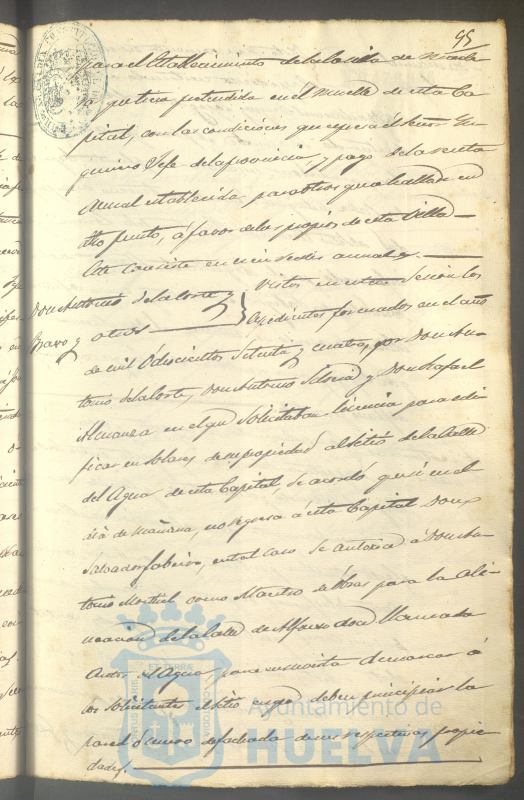 95
para el establecimiento de la casilla de made
ra que tiene pretendida en el muelle de esta Ca
pital, con las condiciones que espresa el Señor In
geniero Jefe de la provincia, y pago de la renta
anual establecida para otros que se hallan en
dho punto, a favor de los propios de esta Villa
Don Antonio de la Corte y
Bravo y otros
Vistos en esta Sesion los
Expedientes formados en el año
de mil ochocientos setenta y cuatro, por Don An
tonio de la Corte, Don Antonio y Don Rafael
Almansa en el que solicitaban licencia para edi
ficar en solares de su propiedad al sitio de la Calle
del Agua de esta Capital, se acordó que si en el
dia de mañana, no regresa á esta Capital Don
Salvador, en tal caso se autoriza á Don An
tonio como Maestro de Obras para la ali
neacion de la Calle de Alfonso doce llamada
antes del Agua, para en su vista demarcar á
los solicitantes el sitio en que deben principiar la
pared ó muro de fachada de sus respectivas propie
dades.
Ayuntamiento de
HUELVA